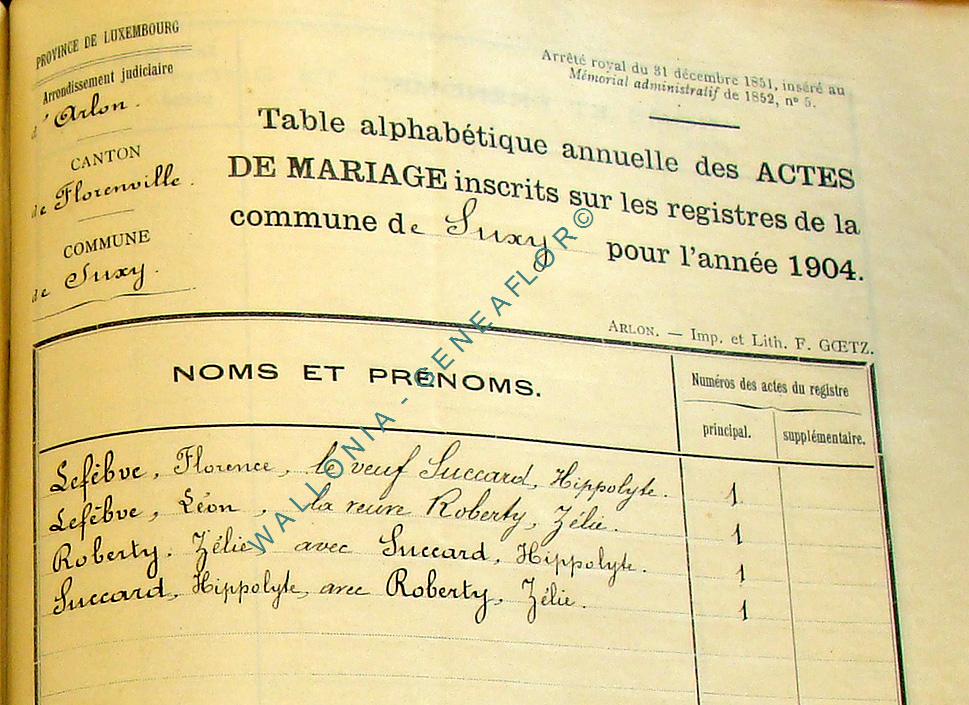 PROVINCE DE LUXEMBOURG
Arrondissement judiciaire
d'Arlon.
CANTON
de Florenville.
COMMUNE
de Suxy.
Arrêté royal du 31 décembre 1851, inséré au
Mémorial administratif de 1852, n° 5.
Table alphabétique annuelle des ACTES
DE MARIAGE inscrits sur les registres de la
commune de Suxy pour l'année 1904.
ARLON. — Imp. et Lith. F. GŒTZ.
NOMS ET PRÉNOMS.
Numéros des actes du registre
principal. supplémentaire.
Lefèbve, Florence, le veuf Succard, Hippolyte. 1
Lefèbve, Léon, la veuve Roberty, Zélie. 1
Roberty, Zélie avec Succard, Hippolyte. 1
Succard, Hippolyte, avec Roberty, Zélie. 1
WALLONIA - GENEAFLOR©